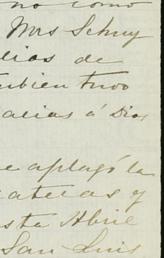 no como
Mrs Schuy
lios de
tambien tuvo
alias á Dios
se aplagó la
ateras y
sta Abril
San Luis